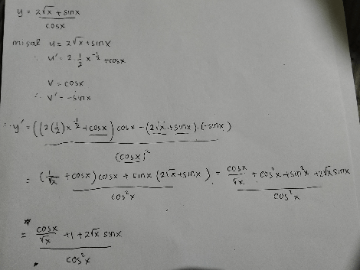 y = 2√x + sinx / cosx
misal u = 2√x + sinx
∴ u' = 2 1/2 x^-1/2 + cosx
v = cosx
∴ v' = -sinx
∴ y' = ((2(1/2)x^-1/2 + cosx) cosx - (2√x + sinx) . (-sinx)) / (cosx)²
= (1/√x + cosx) cosx + sinx (2√x + sinx) / cos²x = cosx/√x + cos²x + sin²x + 2√x sinx / cos²x
= cosx/√x + 1 + 2√x sinx / cos²x